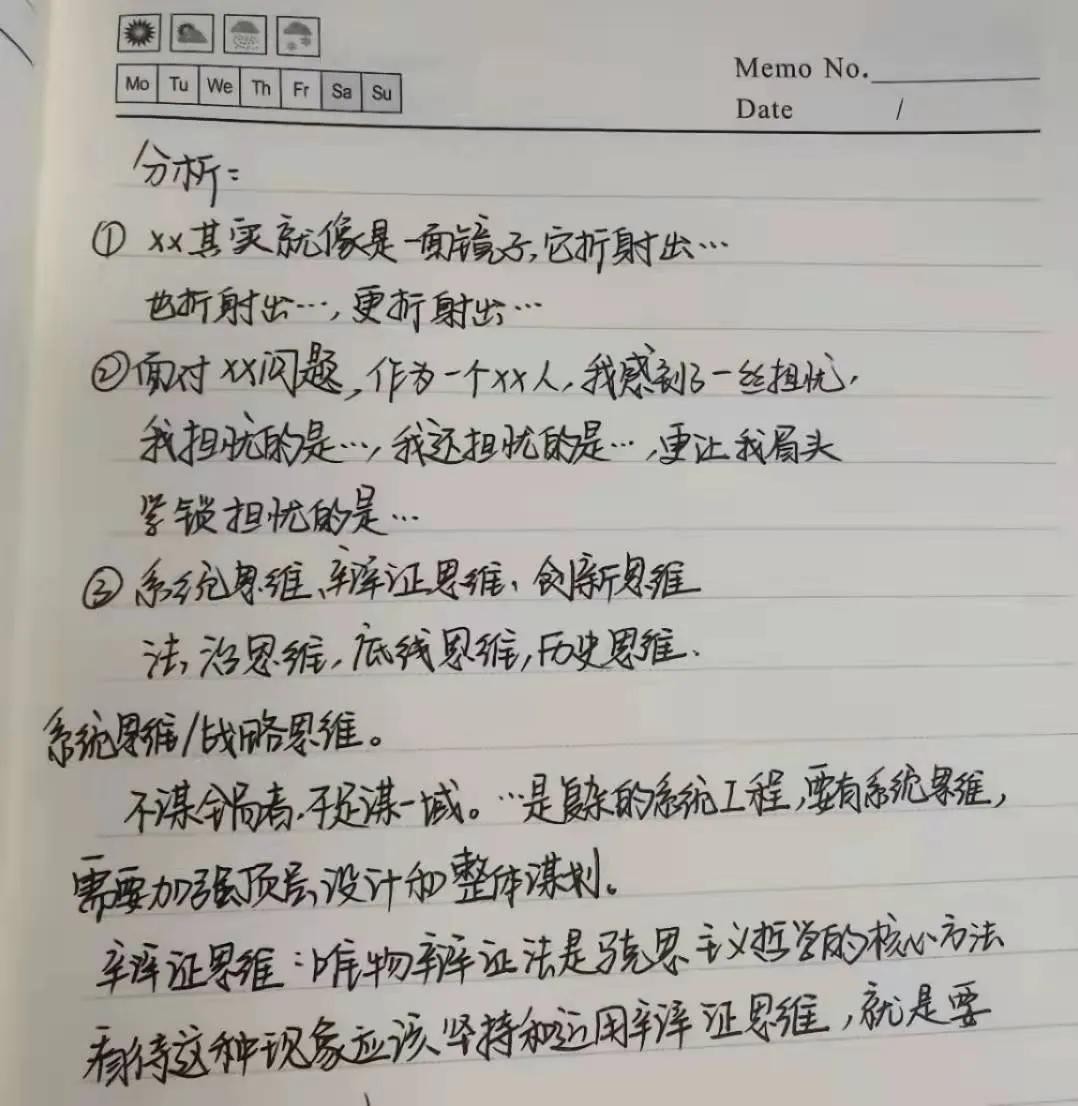 Mo Tu We Th Fr Sa Su
Memo No.
Date /
分析：
① xx其实就像是一面镜子,它折射出…
也折射出…,更折射出…
②面对xx问题,作为一个xx人,我感到了一丝担忧,
我担忧的是…,我还担忧的是…,更让我眉头
紧锁担忧的是…
③ 系统思维、辩证思维、创新思维
法治思维,底线思维,历史思维、
系统思维/战略思维。
不谋全局者,不足谋一域。…是复杂的系统工程,要有系统思维,
需要加强顶层设计和整体谋划。
辩证思维：唯物辩证法是马克思主义哲学的核心方法
看待这种现象应该坚持和运用辩证思维,就是要